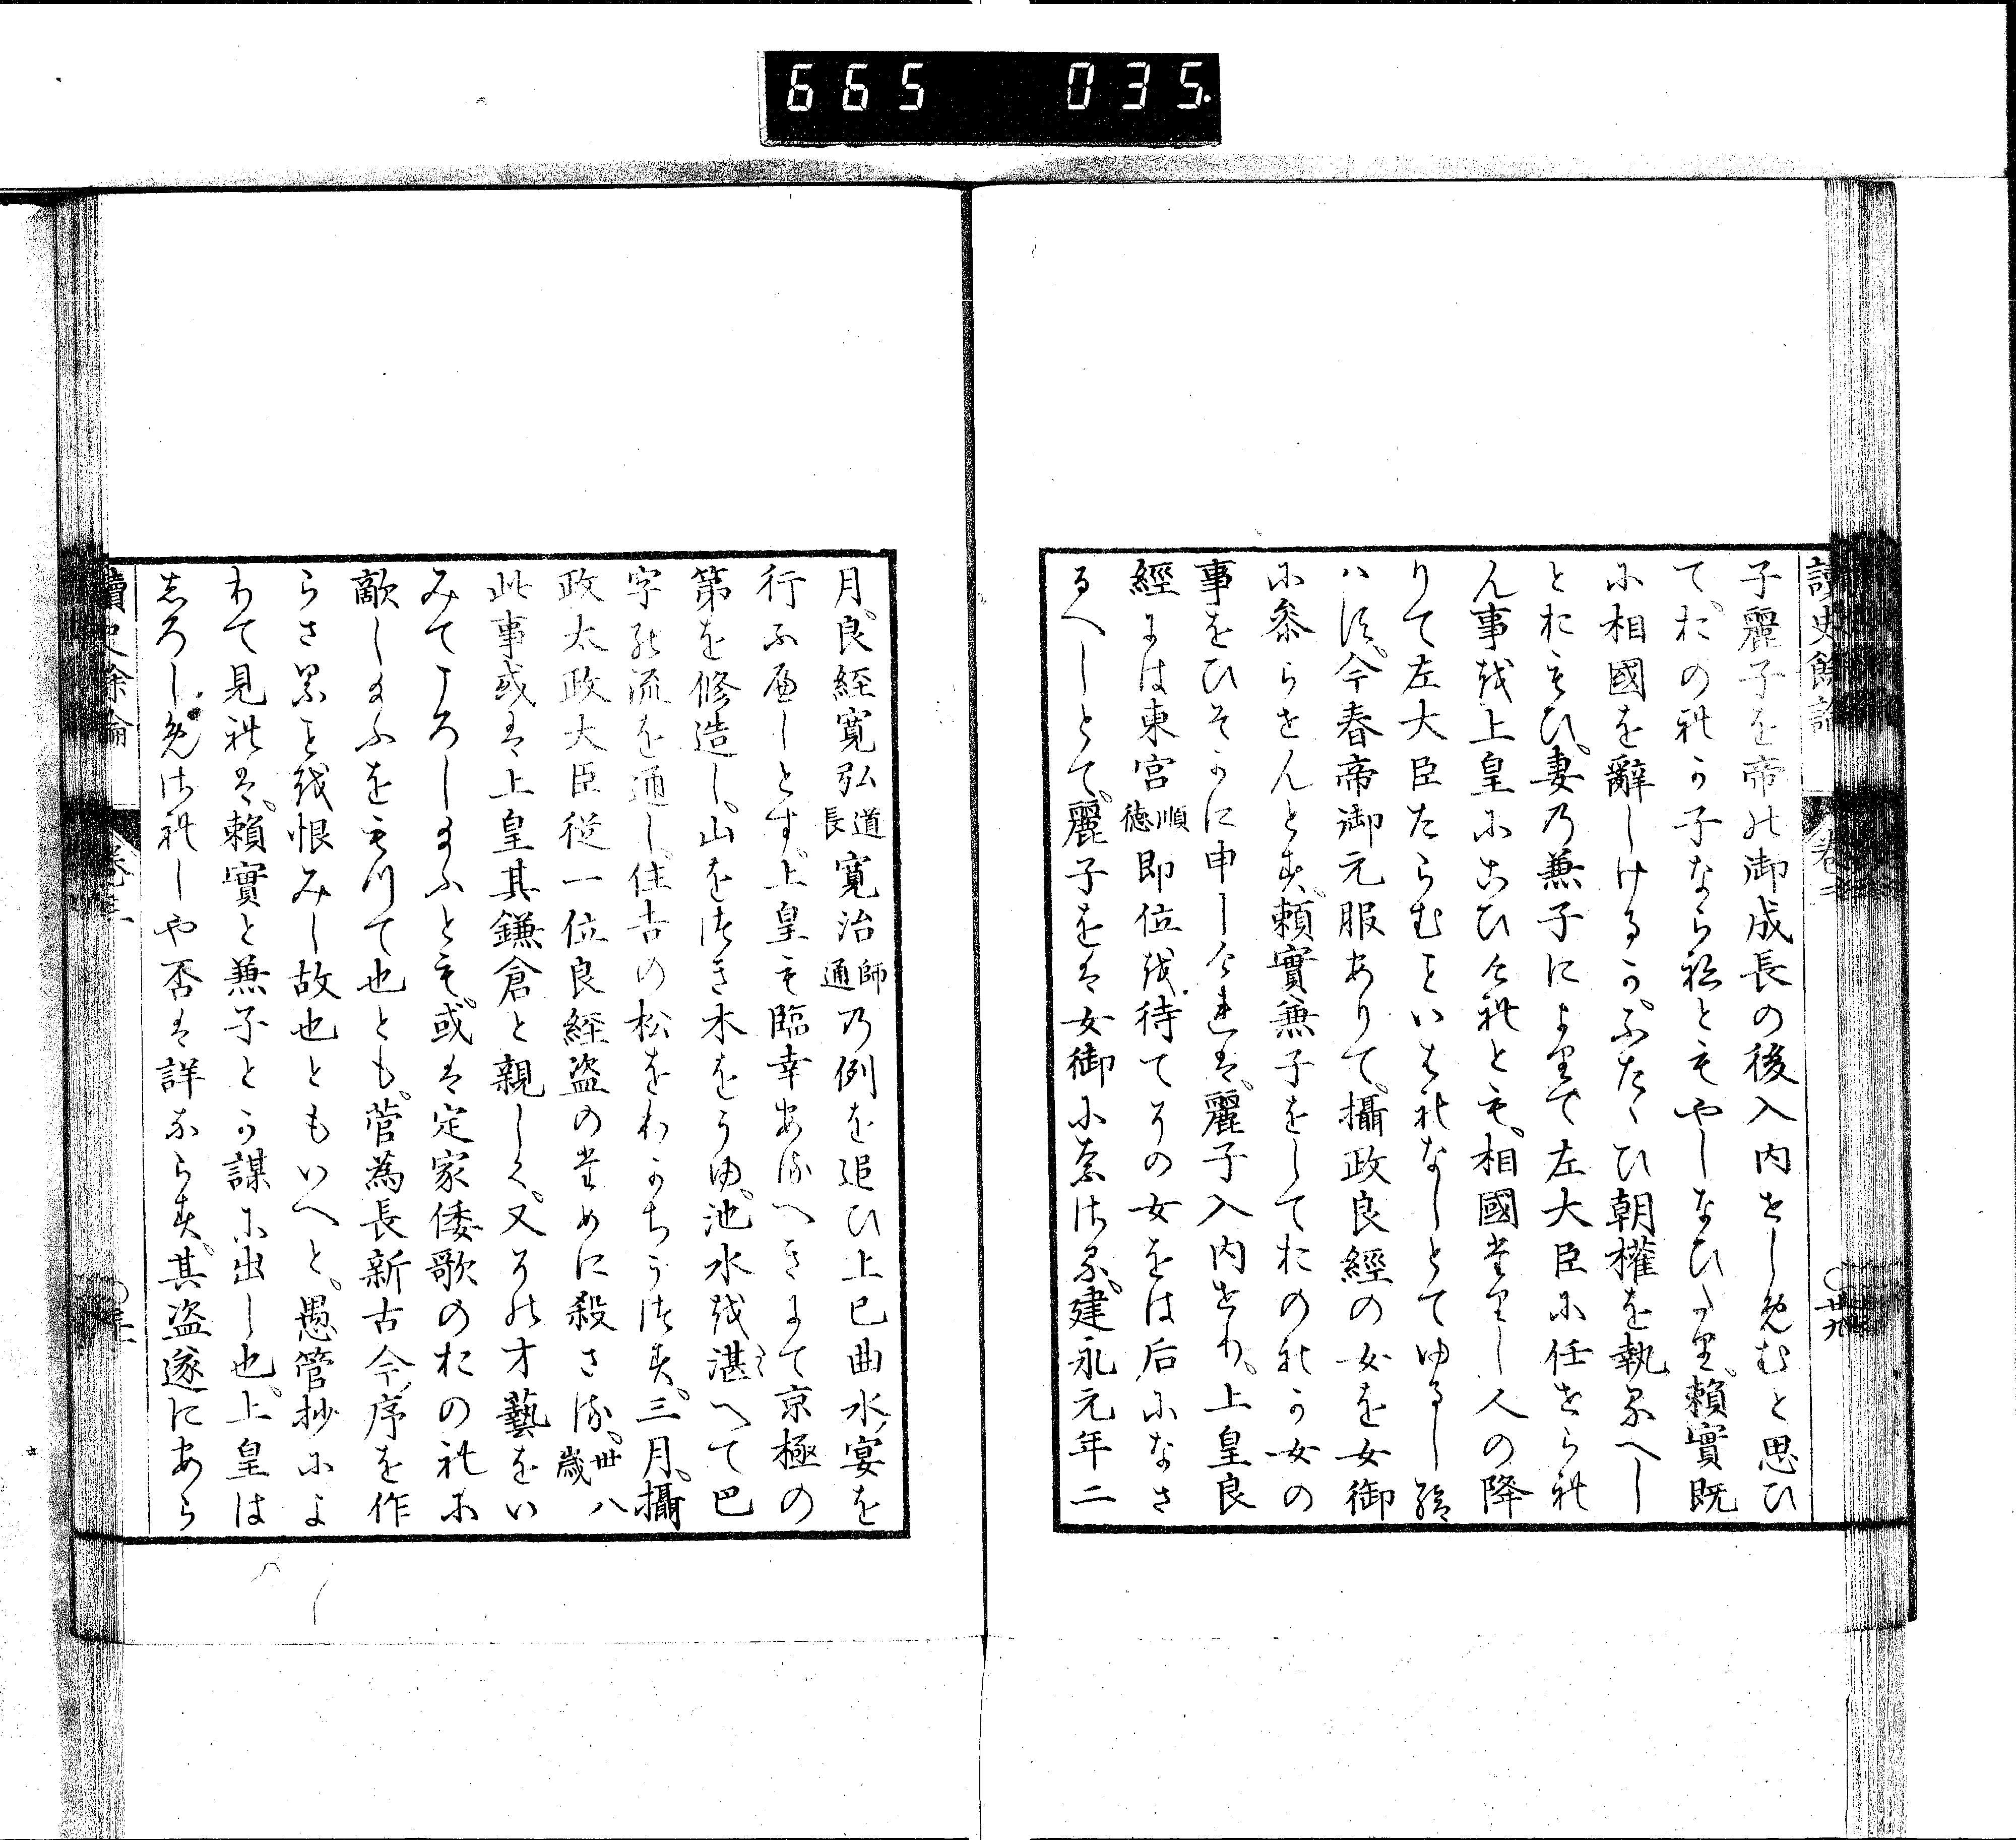 665 035.
讀史餘論 卷三 廿九
子麗子を帝の御成長の後入内せしめむと思ひ
て、おのれか子ならねともやしなひたり、賴實既
に相國を辭しけるか、ふたゝひ朝權を執るへし
とおもひ、妻の兼子によりて左大臣に任せられ
ん事を上皇にこひけれとも、相國たりし人の降
りて左大臣たらむこといはれなしとてゆるし給
はす、今春帝御元服ありて、攝政良經の女を女御
に參らせんとす、賴實兼子をしておのれか女の
事をひそかに申しけれは、麗子入内せり、上皇良
經には東宮順德即位を待てその女をは后になさ
るへしとて、麗子をは女御になさる、建永元年二
月、良經寛弘道長寛治師通の例を追ひ上巳曲水ノ宴を
行ふへしとす、上皇も臨幸あるへきよて京極の
第を修造し、山をつき木をうゆ、池水を湛へて巴
字の流を通し、住吉の松をわかちうつす、三月、攝
政太政大臣從一位良經盗のために殺さる、卅八歳
此事或は上皇其鎌倉と親しく、又その才藝をい
みてころし給ふとも、或は定家倭歌のおのれに
敵し給ふをもつて也とも、菅爲長新古今ノ序を作
らさることを恨みし故也ともいへと、愚管抄によ
りて見れは、賴實と兼子とか謀に出し也、上皇は
しろしめされしや否は詳ならす、其盗遂にあら
讀史餘論 卷三